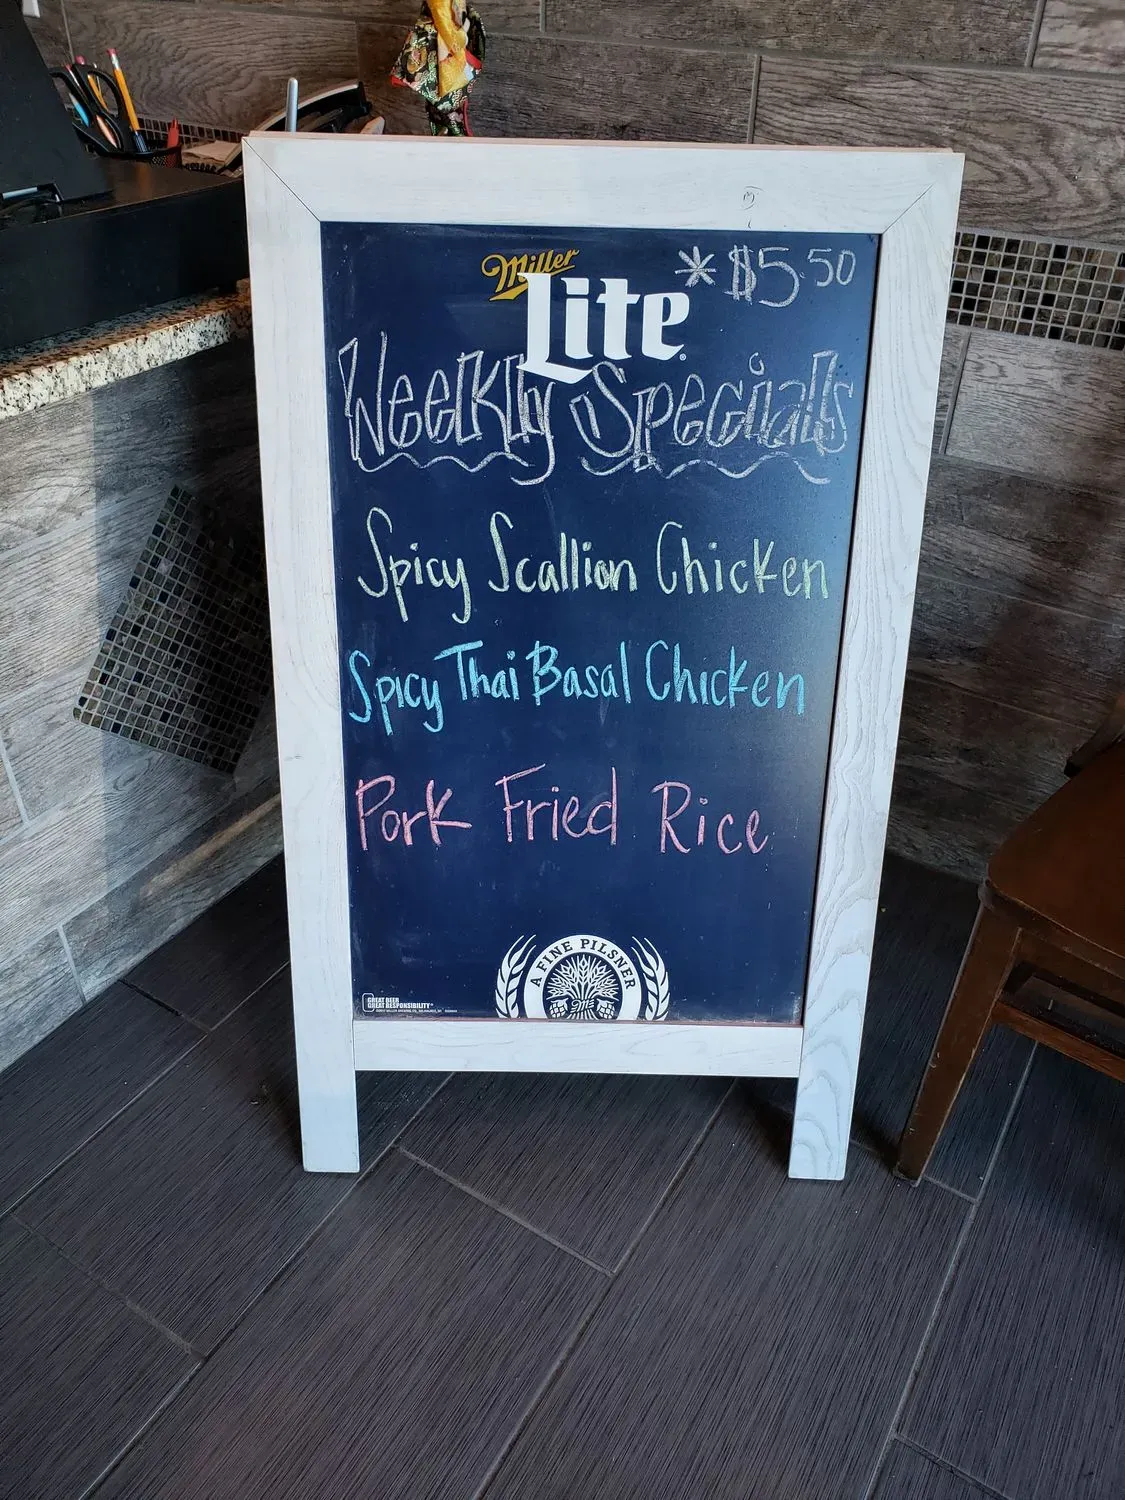 Miller
Lite * $5.50
Weekly Specials
Spicy Scallion Chicken
Spicy Thai Basal Chicken
Pork Fried Rice
A FINE PILSNER
GREAT BEER
GREAT RESPONSIBILITY